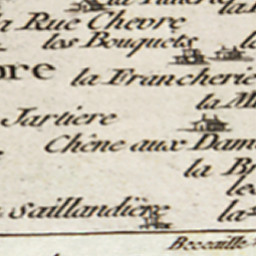 la Rue Chevre
les Bouquets
la Francherie
Jartiere
Chêne aux Dam
la B
Saillandière
la
Becaille